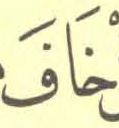 خَافَ